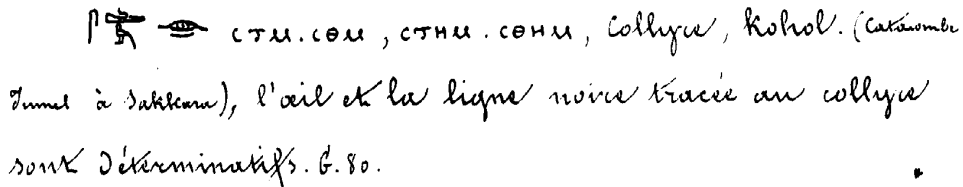 ⲥⲧⲙ. ⲥⲑⲙ, ⲥⲧⲏⲙ. ⲥⲑⲏⲙ, Collyre, Kohol. (Catacombe
Tunnel à Sakkara), l'œil et la ligne noire tracée au collyre
sont déterminatifs. G. 80.